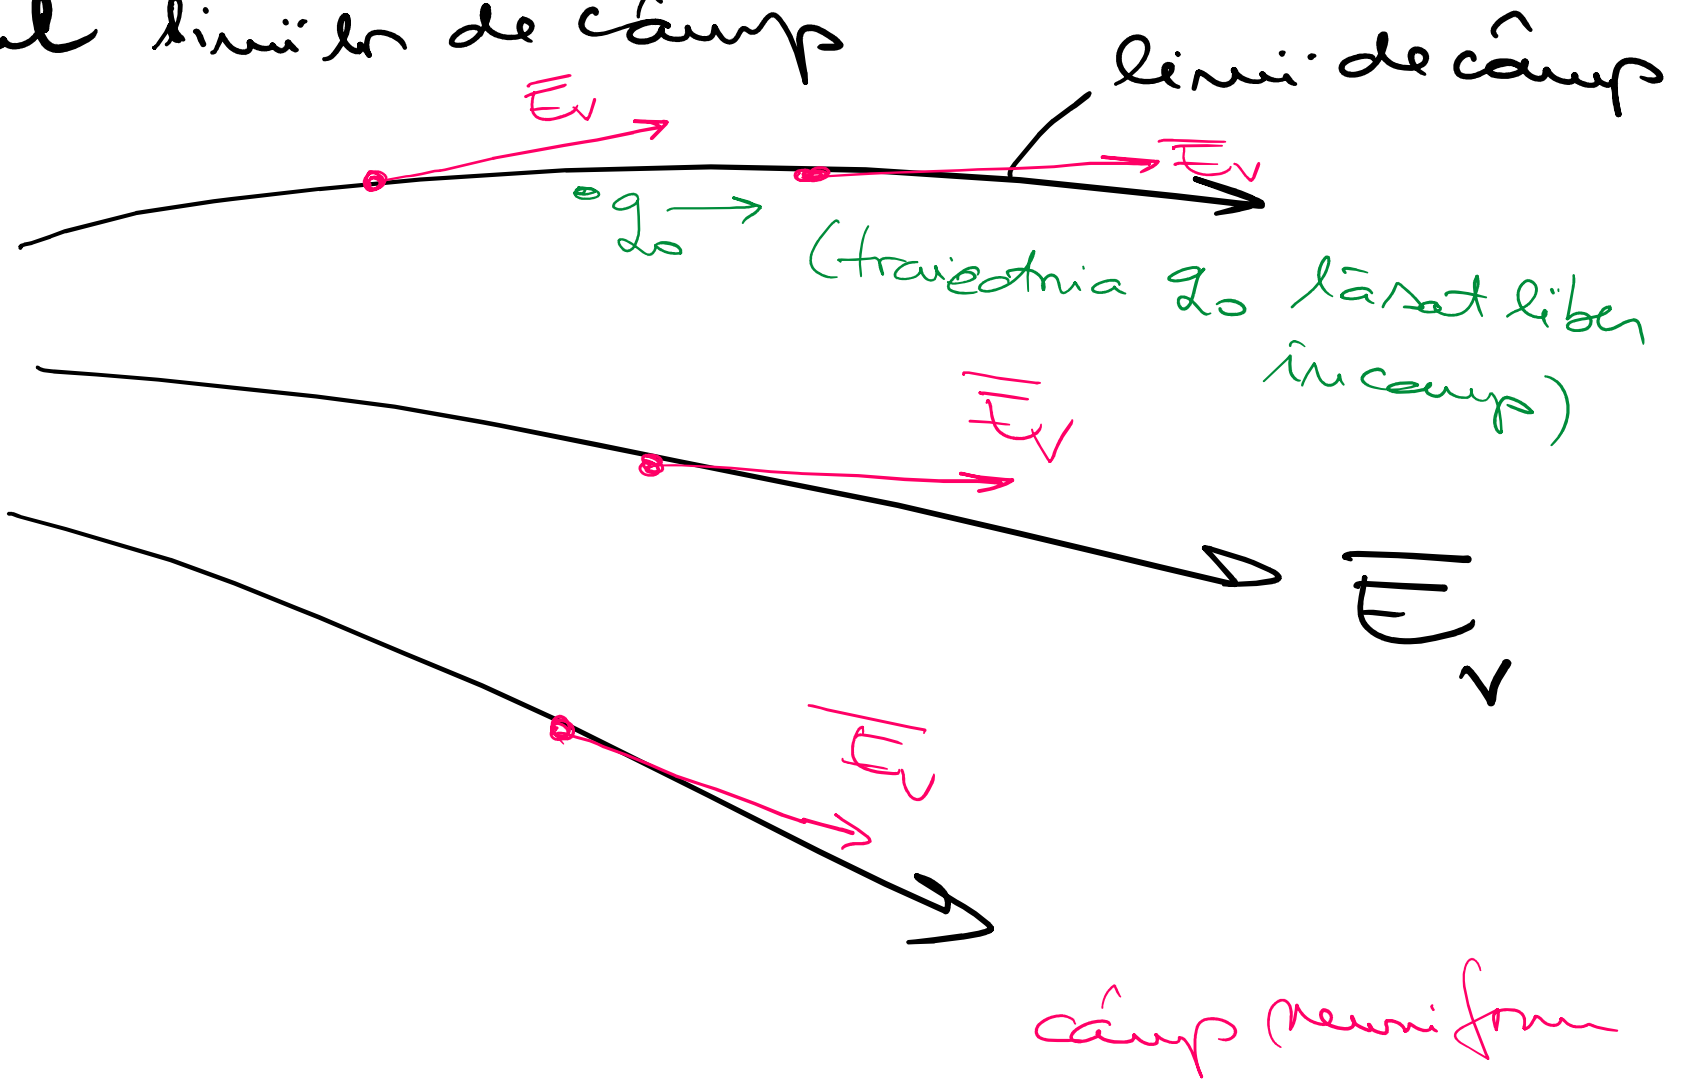 liniilor de câmp
linii de câmp
E̅v
E̅v
q₀
(traiectoria q₀ lăsat liber
în camp)
E̅v
E̅v
E̅v
câmp neuniform